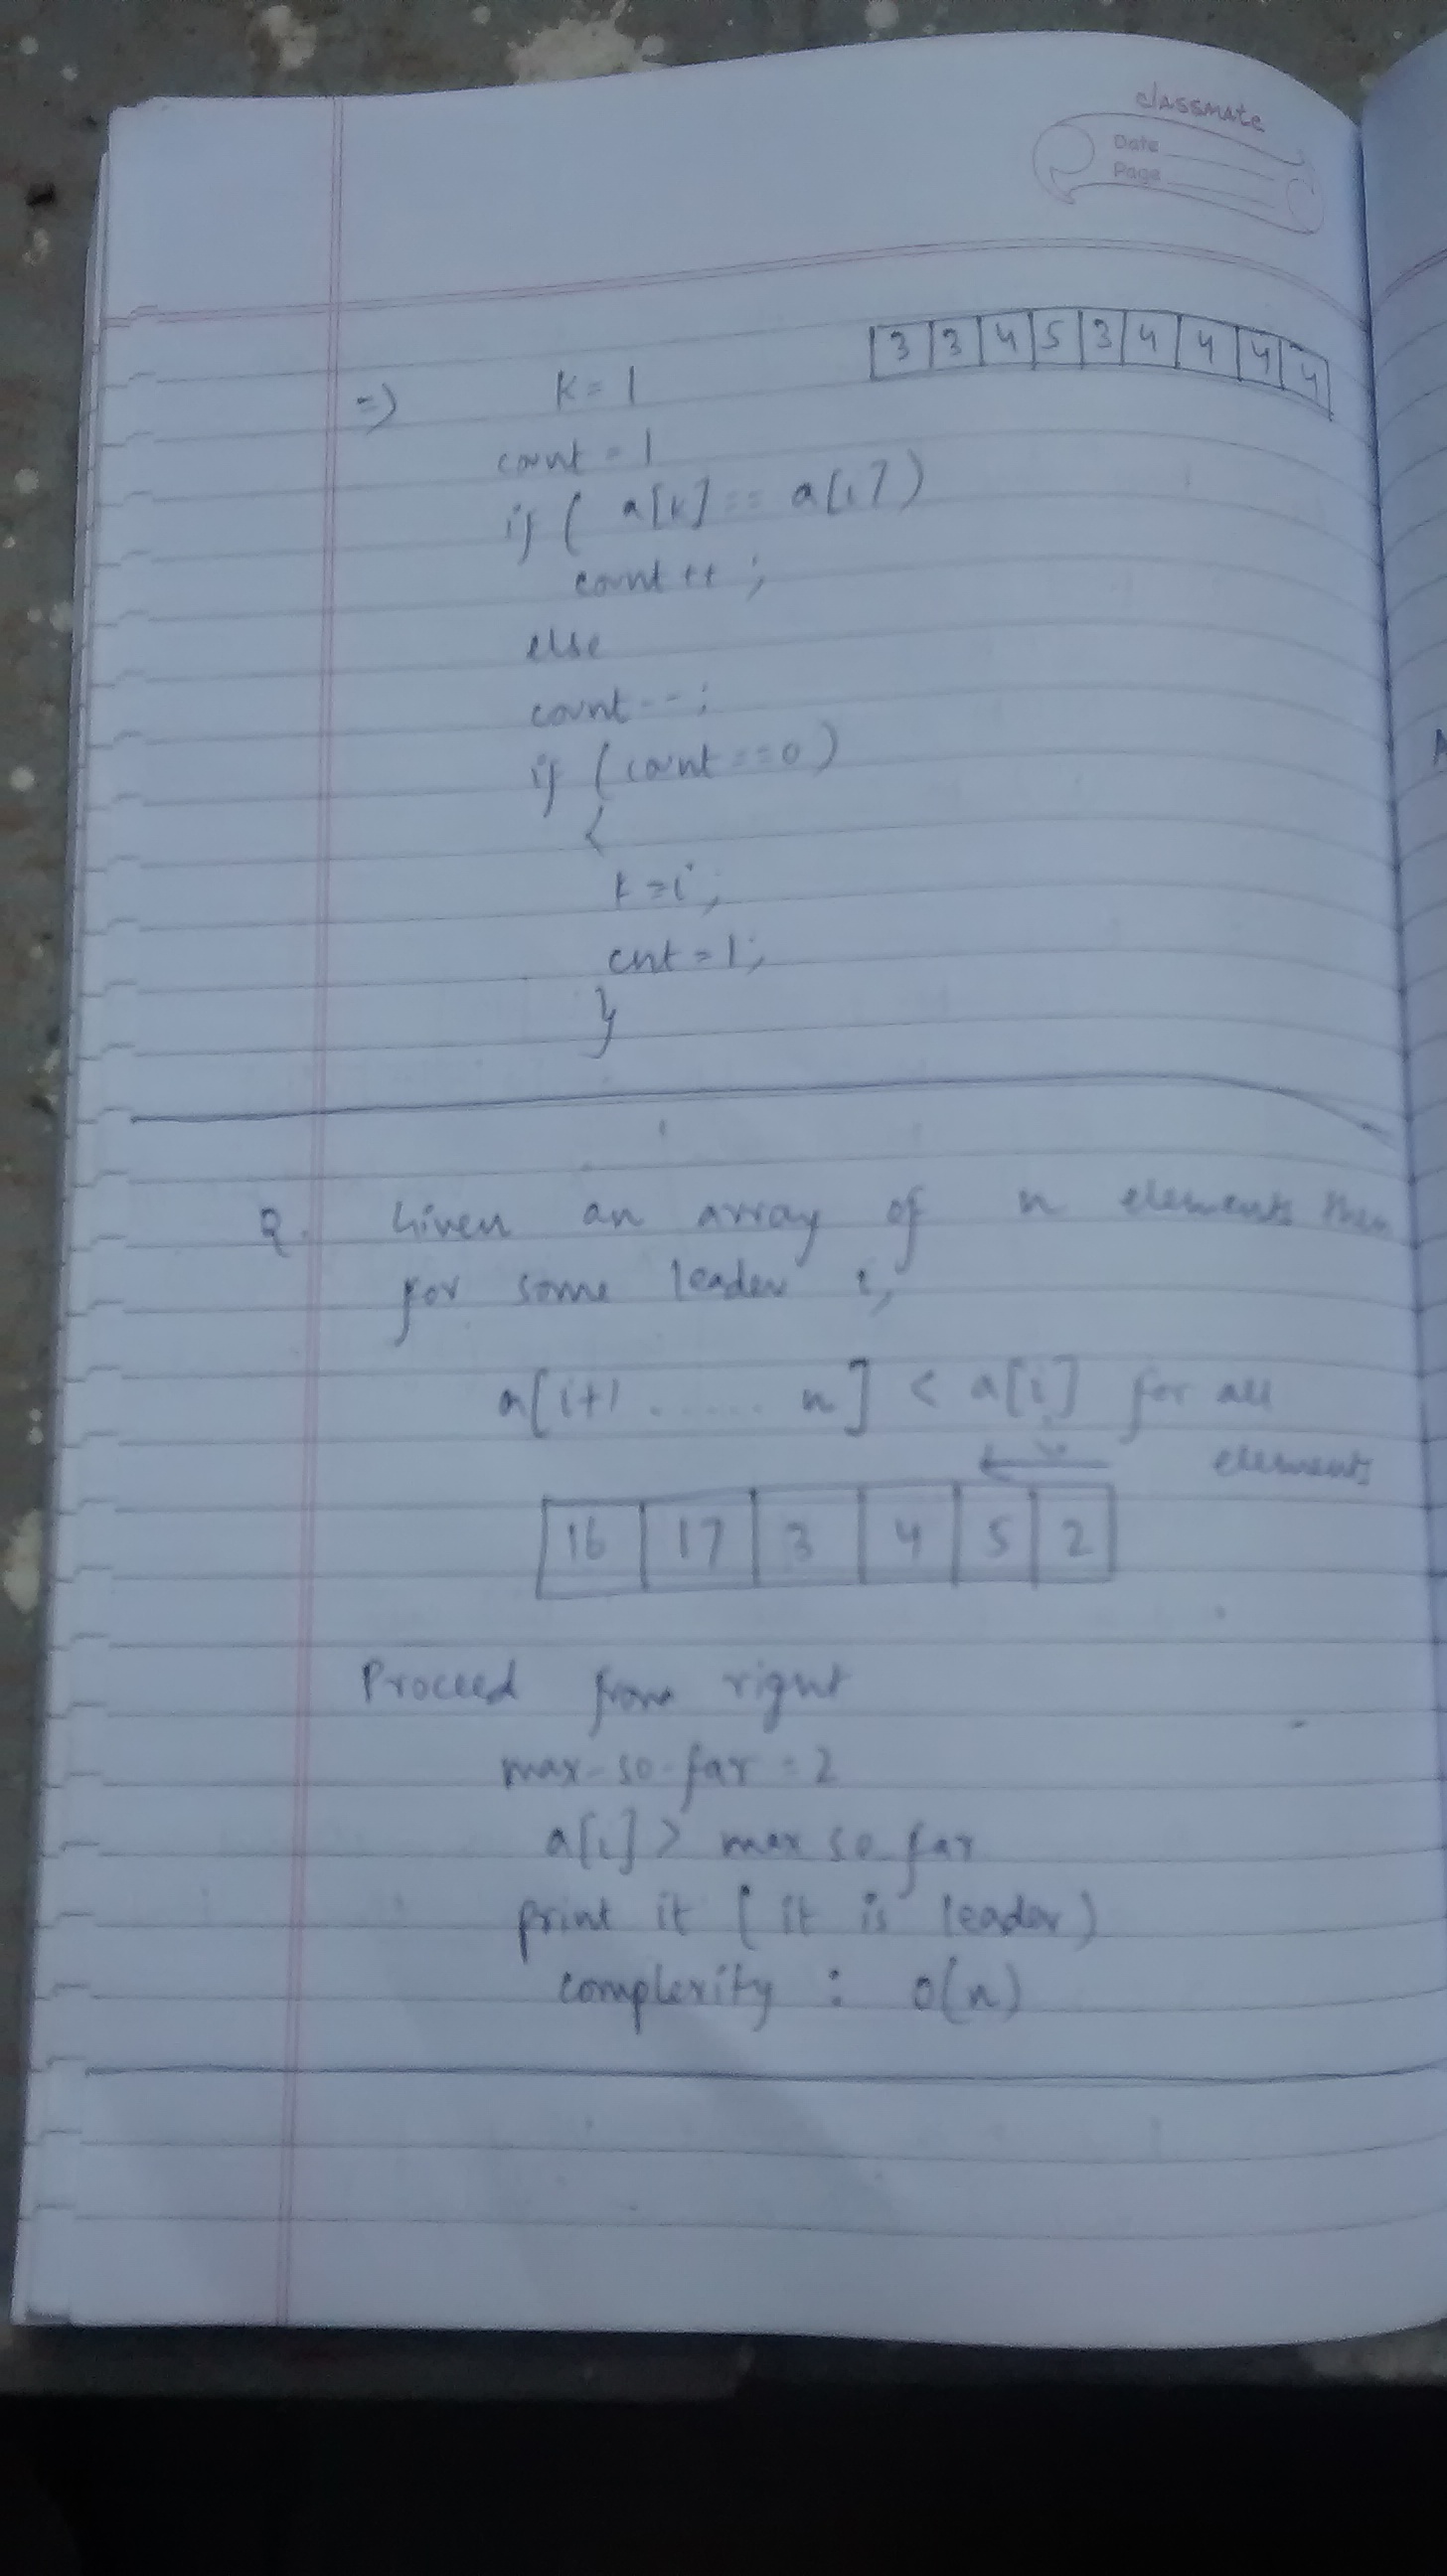 classmate
Date
Page
3 3 4 5 3 4 4 4 4
=> k = 1
count = 1
if ( a[k] == a[i] )
count ++ ;
else
count -- ;
if ( count == 0 )
{
k = i ;
cnt = 1;
}
Q. Given an array of n elements then
for some leader i,
a[i+1 ...... n] < a[i] for all
elements
16 17 3 4 5 2
Proceed from right
max-so-far = 2
a[i] > max so far
print it [ it is leader)
complexity : o(n)